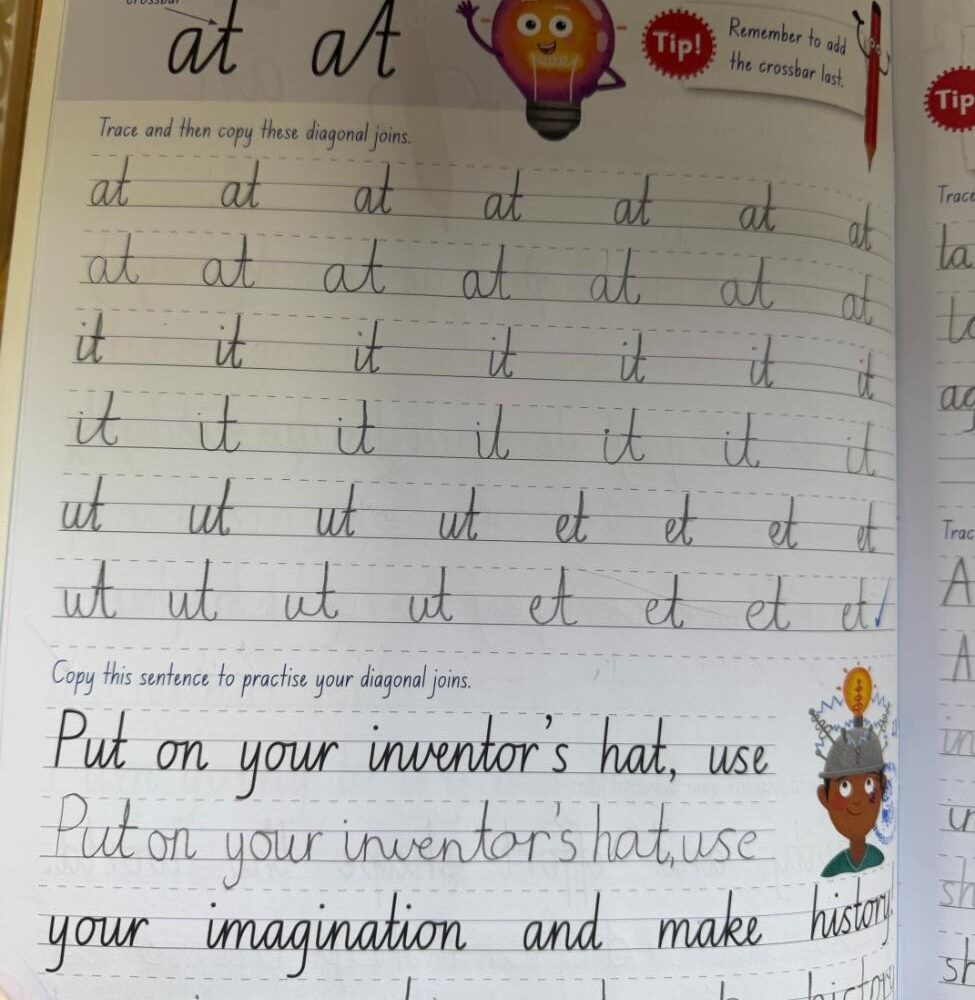 crossbar
at at
Tip!
Remember to add
the crossbar last.
Trace and then copy these diagonal joins.
at at at at at at at
at at at at at at at
it it it it it it it
it it it il it it it
ut ut ut ut et et et et
ut ut ut ut et et et et
Copy this sentence to practise your diagonal joins.
Put on your inventor's hat, use
Put on your inventor's hat, use
your imagination and make history.
history
Tip
Trace
ta
ag
Trac
A
A
in
in
sh
sh